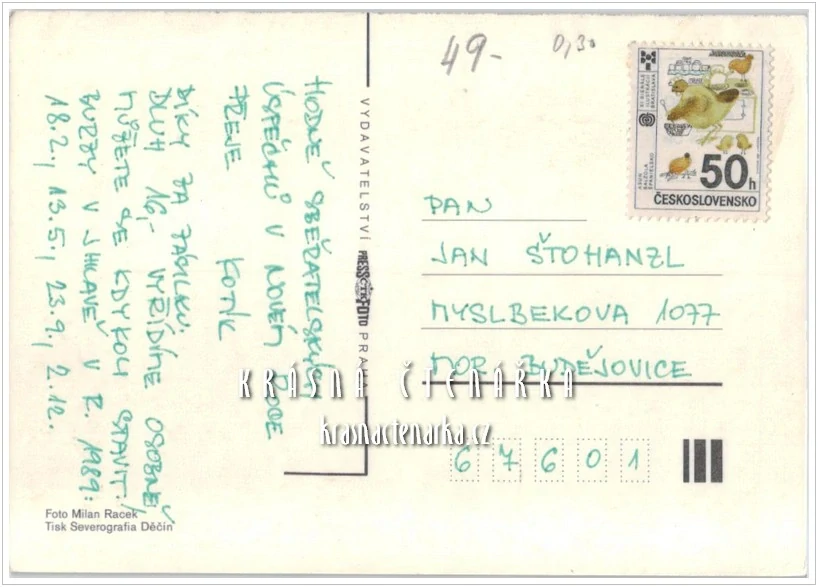 49-
0,30
HODNĚ SBĚRATELSKÝCH
ÚSPĚCHŮ V NOVÉM ROCE
PŘEJE
KOTÍK
DÍKY ZA ZÁSILKU.
DLUH 16,- VYŘÍDÍME OSOBNĚ
MŮŽETE SE KDYKOLI STAVIT!
BURZY V JIHLAVĚ V R. 1989:
18.2., 13.5., 23.9., 2.12.
VYDAVATELSTVÍ PRESSFOTO PRAHA
ČTK
XI BIENÁLE
ILUSTRÁCIÍ
BRATISLAVA
ŠPANIELSKO
50h
ČESKOSLOVENSKO
PAN
JAN ŠTOHANZL
MYSLBEKOVA 1077
MOR. BUDĚJOVICE
67601
KRÁSNÁ ČTENÁŘKA
krasnactenarka.cz
Foto Milan Racek
Tisk Severografia Děčín